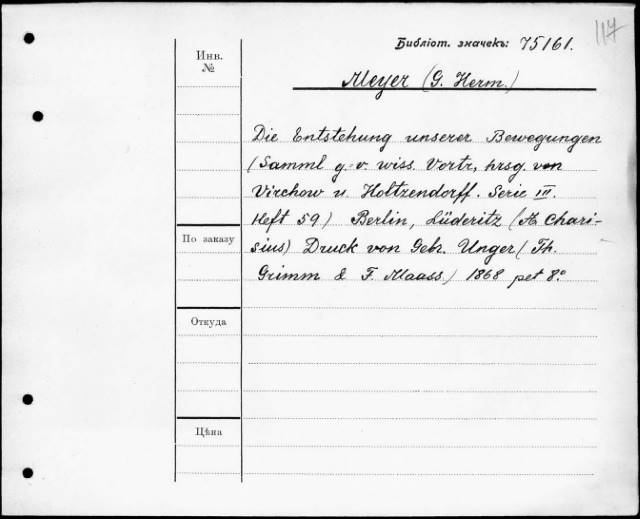 117
Библіот. значекъ: 75161.
Инв.
№
Meyer (G. Herm.)
Die Entstehung unserer Bewegungen
(Samml g. v. wiss. Vortr, hrsg. von
Virchow u. Holtzendorff. Serie III.
Heft 59) Berlin, Lüderitz (A Chari-
sius) Druck von Gebr. Unger (Th.
Grimm & F. Maass.) 1868 pet 8°.
По заказу
Откуда
Цѣна